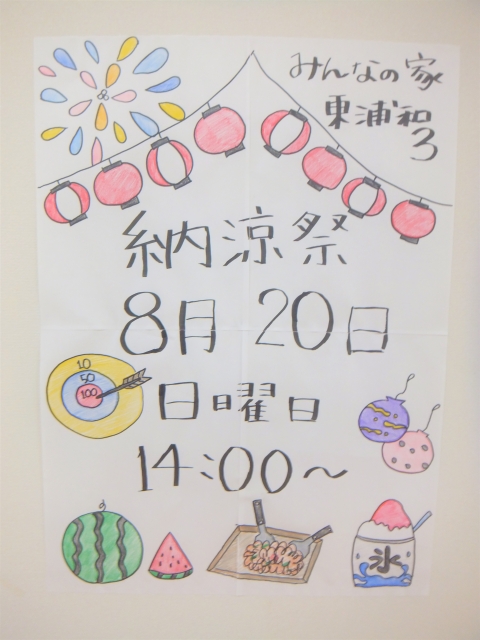 みんなの家
東浦和
3
納涼祭
8月 20日
日曜日
14:00～
10
50
100
氷